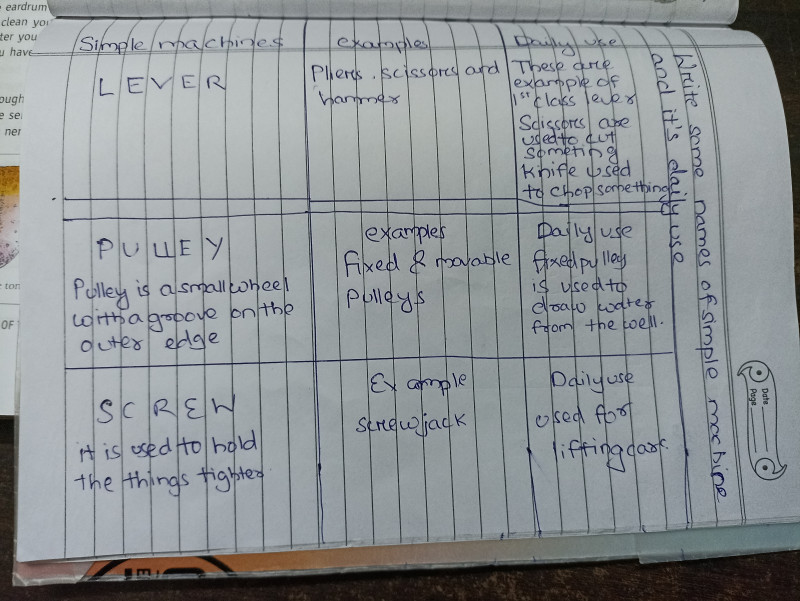 Write some names of simple machine
and it's daily use
Simple machines
examples
Daily use
LEVER
Pliers, scissors and
hammer
These are
example of
1st class lever
Scissors are
used to cut
someting
Knife used
to chop something
PULLEY
Pulley is a small wheel
with a groove on the
outer edge
examples
fixed & movable
Pulleys
Daily use
fixed pulley
is used to
draw water
from the well.
SCREW
it is used to hold
the things tighter
Example
screw jack
Daily use
used for
lifting cars.
Date
Page
eardrum
clean you
ter you
u have
ough
e se
ner
ton
OF